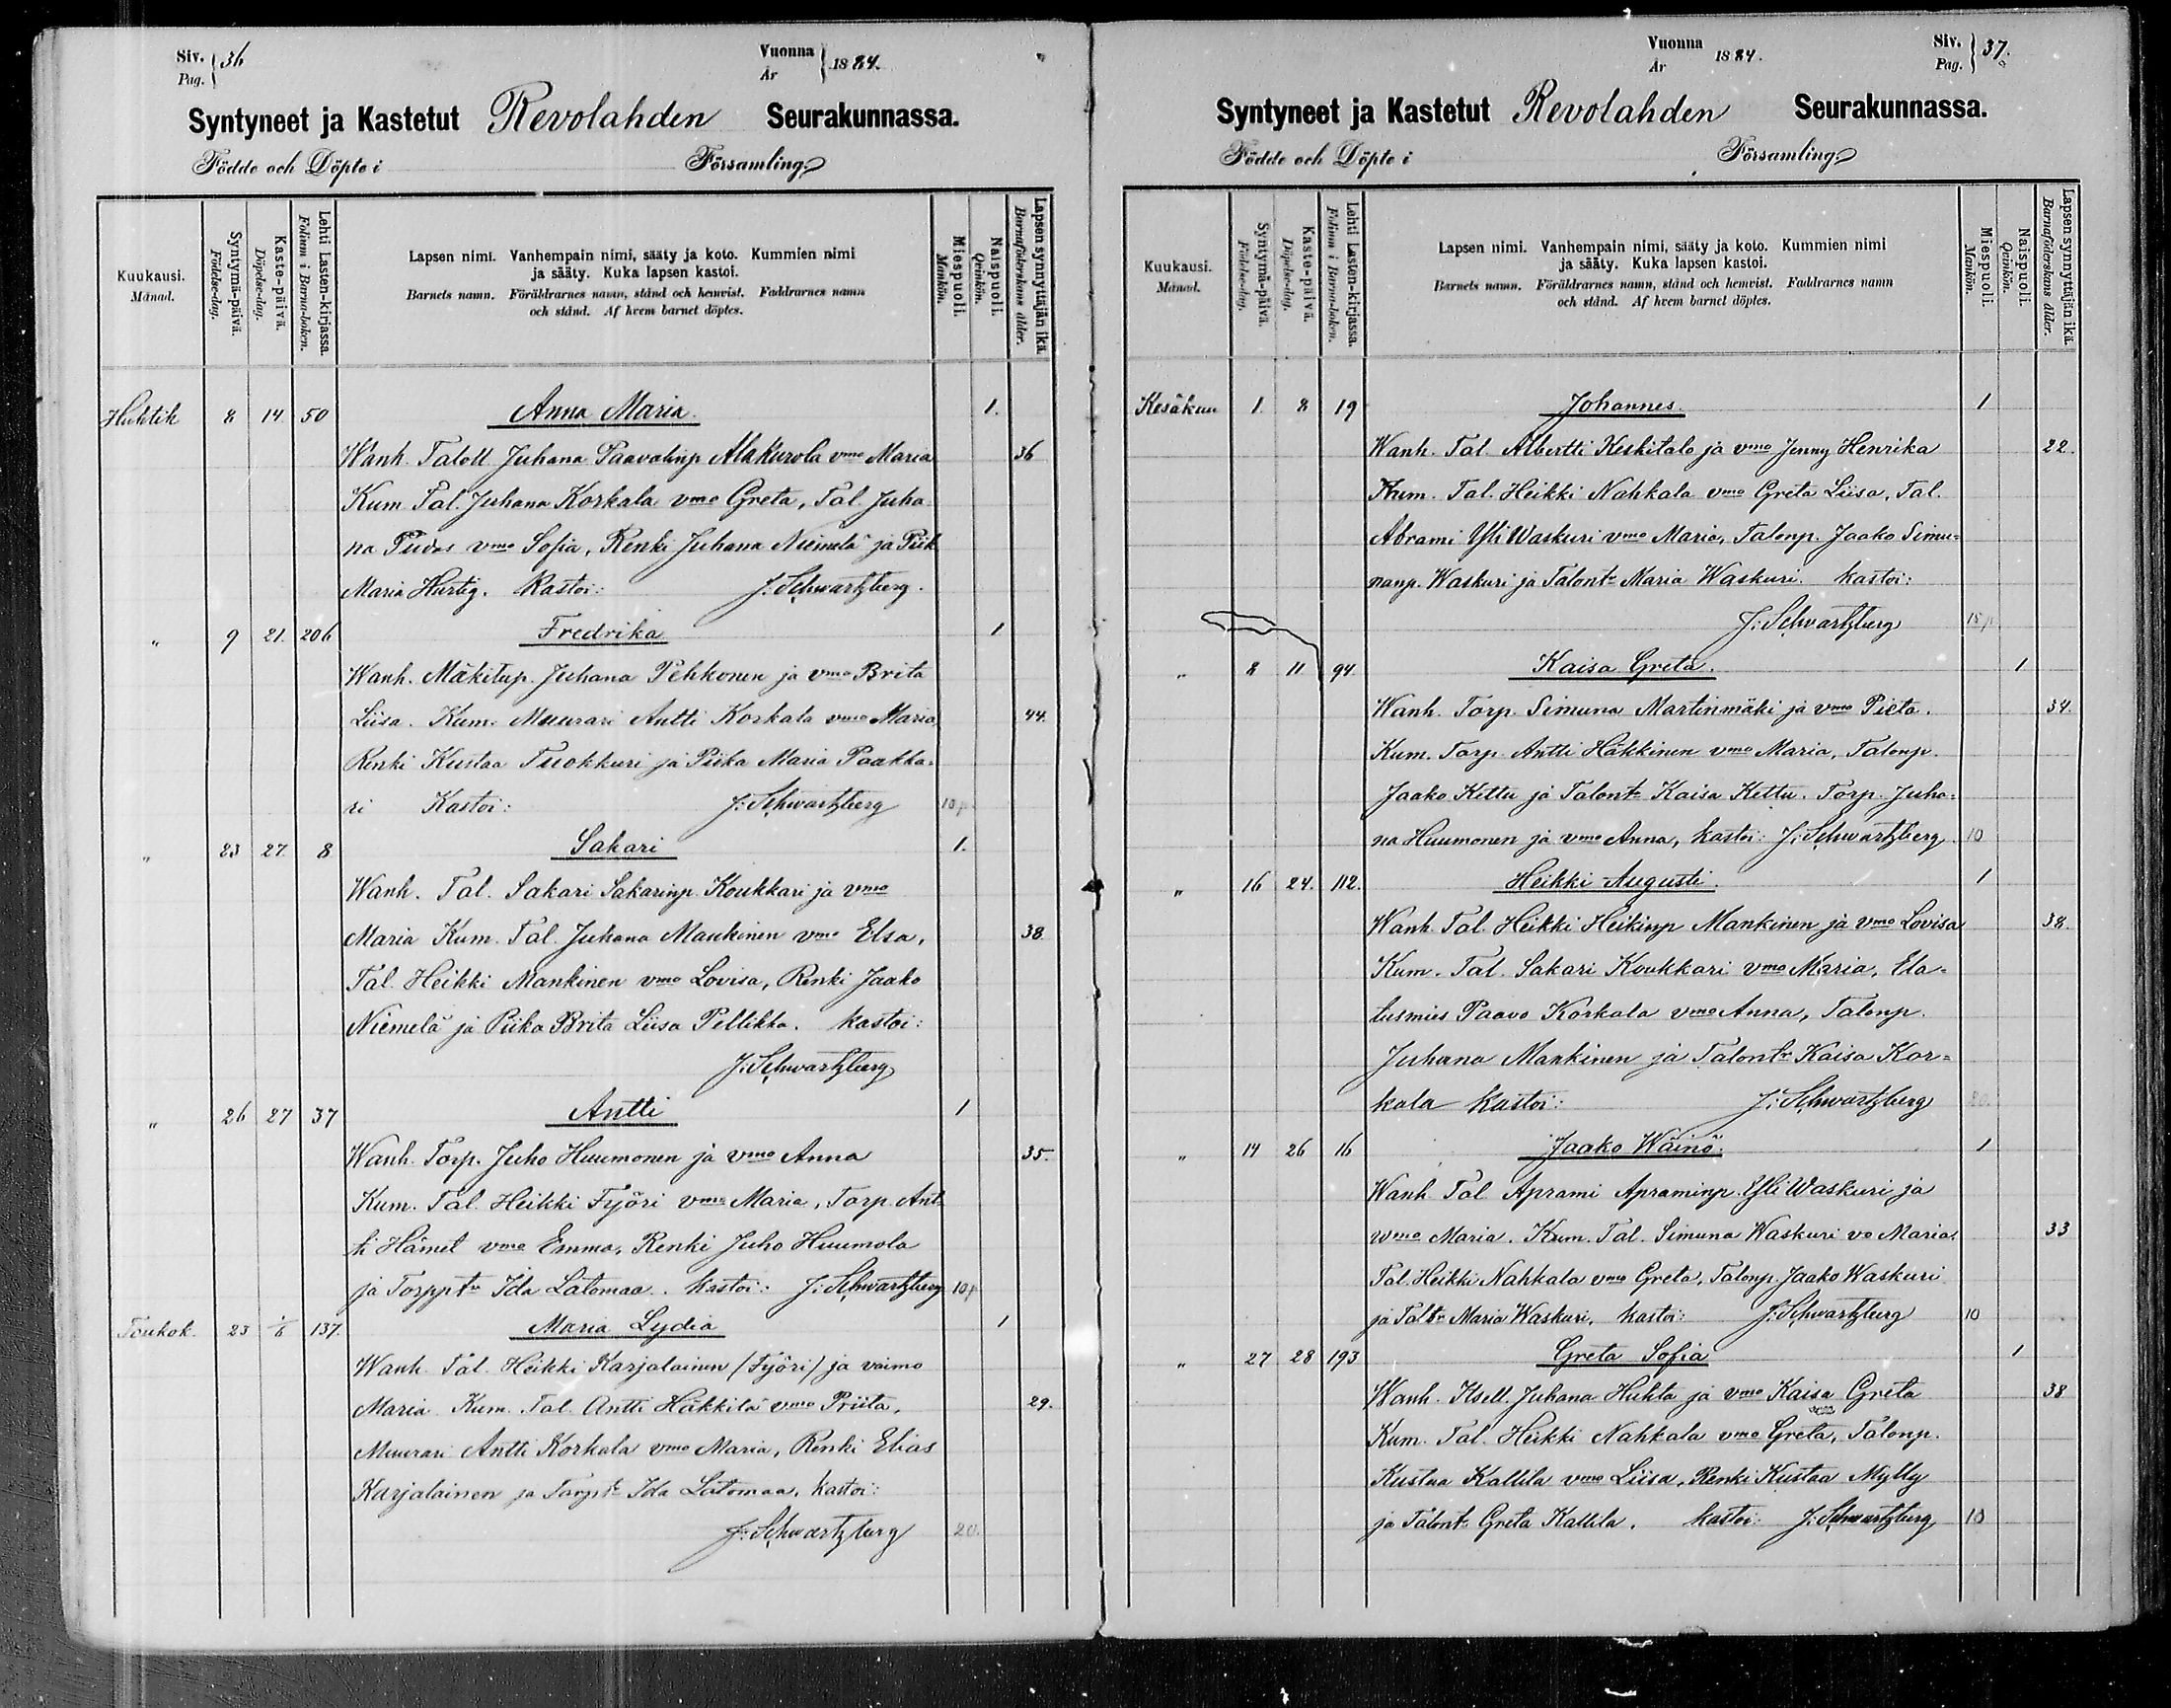 Siv. 36
Pag.
Vuonna 1884.
År
Syntyneet ja Kastetut Revolahden Seurakunnassa.
Födde och Döpte i Församling.
Kuukausi.
Månad.
Syntymä-päivä.
Födelse-dag.
Kaste-päivä.
Döpelse-dag.
Lehti Lasten-kirjassa.
Folium i Barna-boken.
Lapsen nimi. Vanhempain nimi, sääty ja koto. Kummien nimi
ja sääty. Kuka lapsen kastoi.
Barnets namn. Föräldrarnes namn, stånd och hemvist. Faddrarnes namn
och stånd. Af hvem barnet döptes.
Miespuoli.
Mankön.
Naispuoli.
Qvinkön.
Lapsen synnyttäjän ikä.
Barnaföderskans ålder.
Huhtik 8 14. 50 Anna Maria. 1.
Wanh. Taloll Juhana Paavalinp Alakurola vmo Maria 36
Kum. Tal. Juhana Korkala vmo Greta, Tal. Juha
na Pudas vmo Sofia, Renki Juhana Niemelä ja Piik
Maria Hurtig. Kastoi: J. Schwartzberg.
„ 9 21. 206 Fredrika 1
Wanh. Mäkitup. Juhana Pehkonen ja vmo Brita
Liisa. Kum. Muurari Antti Korkala vmo Maria 44.
Renki Kustaa Tuokkuri ja Piika Maria Paakka-
ri Kastoi: J. Schwartzberg 10 p
„ 23 27. 8 Sakari 1.
Wanh. Tal. Sakari Sakarinp. Koukkari ja vmo
Maria Kum. Tal. Juhana Mankinen vmo Elsa, 38.
Tal. Heikki Mankinen vmo Lovisa, Renki Jaako
Niemelä ja Piika Brita Liisa Pellikka. Kastoi:
J. Schwartzberg
„ 26 27 37 Antti 1
Wanh. Torp. Juho Huumonen ja vmo Anna 35.
Kum. Tal. Heikki Fyöri vmo Maria, Torp. Ant-
ti Hämet vmo Emma, Renki Juho Huumola
ja Torppt. Ida Latomaa. Kastoi: J. Schwartzberg 10 p
Toukok. 23 1/6 137. Maria Lydia 1
Wanh. Tal. Heikki Karjalainen (Fyöri) ja vaimo
Maria Kum. Tal. Antti Häkkilä vmo Priita, 29.
Muurari Antti Korkala vmo Maria, Renki Elias
Karjalainen ja Torpt. Ida Latomaa, Kastoi:
J. Schwartzberg 20.
Vuonna 1884.
År
Siv. 37.
Pag.
Syntyneet ja Kastetut Revolahden Seurakunnassa.
Födde och Döpte i Församling.
Kuukausi.
Månad.
Syntymä-päivä.
Födelse-dag.
Kaste-päivä.
Döpelse-dag.
Lehti Lasten-kirjassa.
Folium i Barna-boken.
Lapsen nimi. Vanhempain nimi, sääty ja koto. Kummien nimi
ja sääty. Kuka lapsen kastoi.
Barnets namn. Föräldrarnes namn, stånd och hemvist. Faddrarnes namn
och stånd. Af hvem barnet döptes.
Miespuoli.
Mankön.
Naispuoli.
Qvinkön.
Lapsen synnyttäjän ikä.
Barnaföderskans ålder.
Kesäkuu 1. 8 19 Johannes 1
Wanh. Tal. Albertti Keskitalo ja vmo Jenny Henrika 22.
Kum. Tal. Heikki Nahkala vmo Greta Liisa, Tal.
Abrami Yli Waskuri vmo Maria, Talonp. Jaako Simu-
nanp. Waskuri ja Talont. Maria Waskuri. Kastoi:
J. Schwartzberg 15 p
„ 8 11 94. Kaisa Greta. 1
Wanh. Torp. Simuna Martinmäki ja vmo Pieta. 34.
Kum. Torp. Antti Häkkinen vmo Maria, Talonp.
Jaako Kettu ja Talont. Kaisa Kettu. Torp. Juha-
na Huumonen ja vmo Anna, Kastoi: J. Schwartzberg. 10
„ 16 24. 112. Heikki Augusti. 1
Wanh. Tal. Heikki Heikinp Mankinen ja vmo Lovisa 38.
Kum. Tal. Sakari Koukkari vmo Maria, Elä-
tusmies Paavo Korkala vmo Anna, Talonp.
Juhana Mankinen ja Talontr Kaisa Kor-
kala Kastoi: J. Schwartzberg
„ 14 26 16 Jaako Wäinö. 1
Wanh. Tal. Aprami Apraminp. Yli Waskuri ja
vmo Maria. Kum. Tal. Simuna Waskuri vo Maria. 33
Tal. Heikki Nahkala vmo Greta, Talonp. Jaako Waskuri
ja Taltr Maria Waskuri, Kastoi: J. Schwartzberg 10
„ 27 28 193 Greta Sofia 1
Wanh. Itsell. Juhana Huhta ja vmo Kaisa Greta 38
Kum. Tal. Heikki Nahkala vmo Greta, Talonp.
Kustaa Kallila vmo Liisa, Renki Kustaa Mylly
ja Talont. Greta Kallila. Kastoi: J. Schwartzberg 10